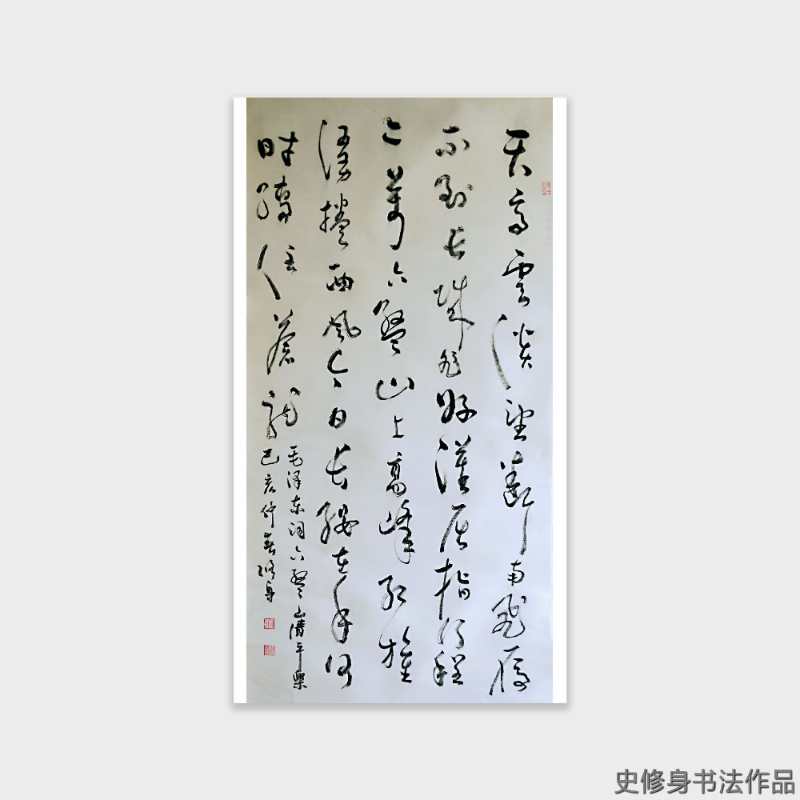 天高雲淡望斷南飛雁
不到長城非好漢屈指行程
二萬六盤山上高峰紅旗
漫捲西風今日長纓在手何
時縛住蒼龍
毛泽东词六盤山清平樂
己亥仲春修身
史修身书法作品